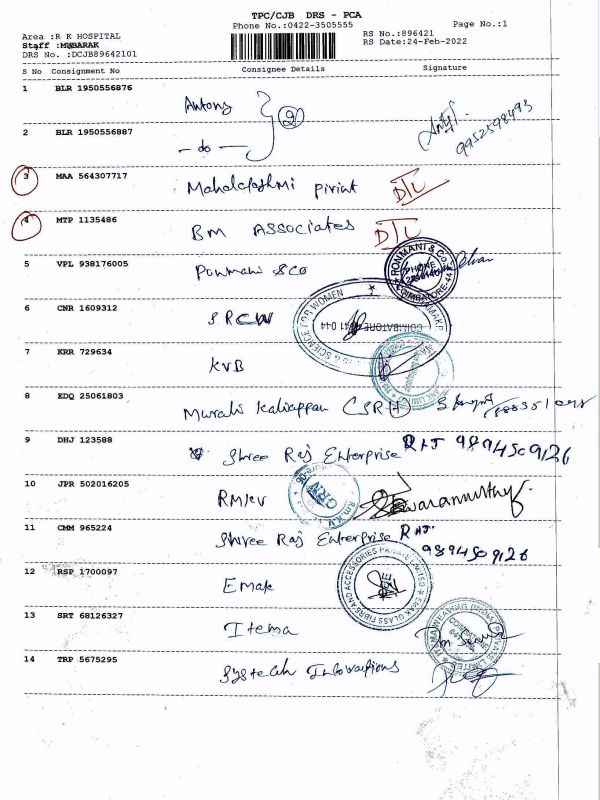 TPC/CJB DRS - PCA
Phone No.:0422-3505555
Page No.:1
Area :R K HOSPITAL
RS No.:896421
Staff :MUBARAK
RS Date:24-Feb-2022
DRS No. :DCJB89642101
S No Consignment No Consignee Details Signature
1 BLR 1950556876 Antony
2
9952598493
2 BLR 1950556887 - do -
3 MAA 564307717 Mahalakshmi print DTL
4 MTP 1135486 BM ASSOCIATES DTL
5 VPL 938176005 Ponmani &co
PONMANI & CO
PHONE
COIMBATORE-44
6 CNR 1609312 SRCW
SCIENCE FOR WOMEN
COIMBATORE 641 044
7 KRR 729634 KVB
8 EDQ 25061803 Murali Kaliappan (SRH)
9 DHJ 123588 Shree Raj Enterprise RAJ 9894509126
10 JPR 502016205 RMKV
GRN
11 CMM 965224 Shree Raj Enterprise RAJ
9894509126
12 RSP 1700097 Emak
EMAK GLASS FIBRE AND ACCESSORIES PRIVATE LIMITED
13 SRT 68126327 Itema
ITEMA WEAVING (INDIA) PRIVATE LIMITED
14 TRP 5675295 Systech Inovations